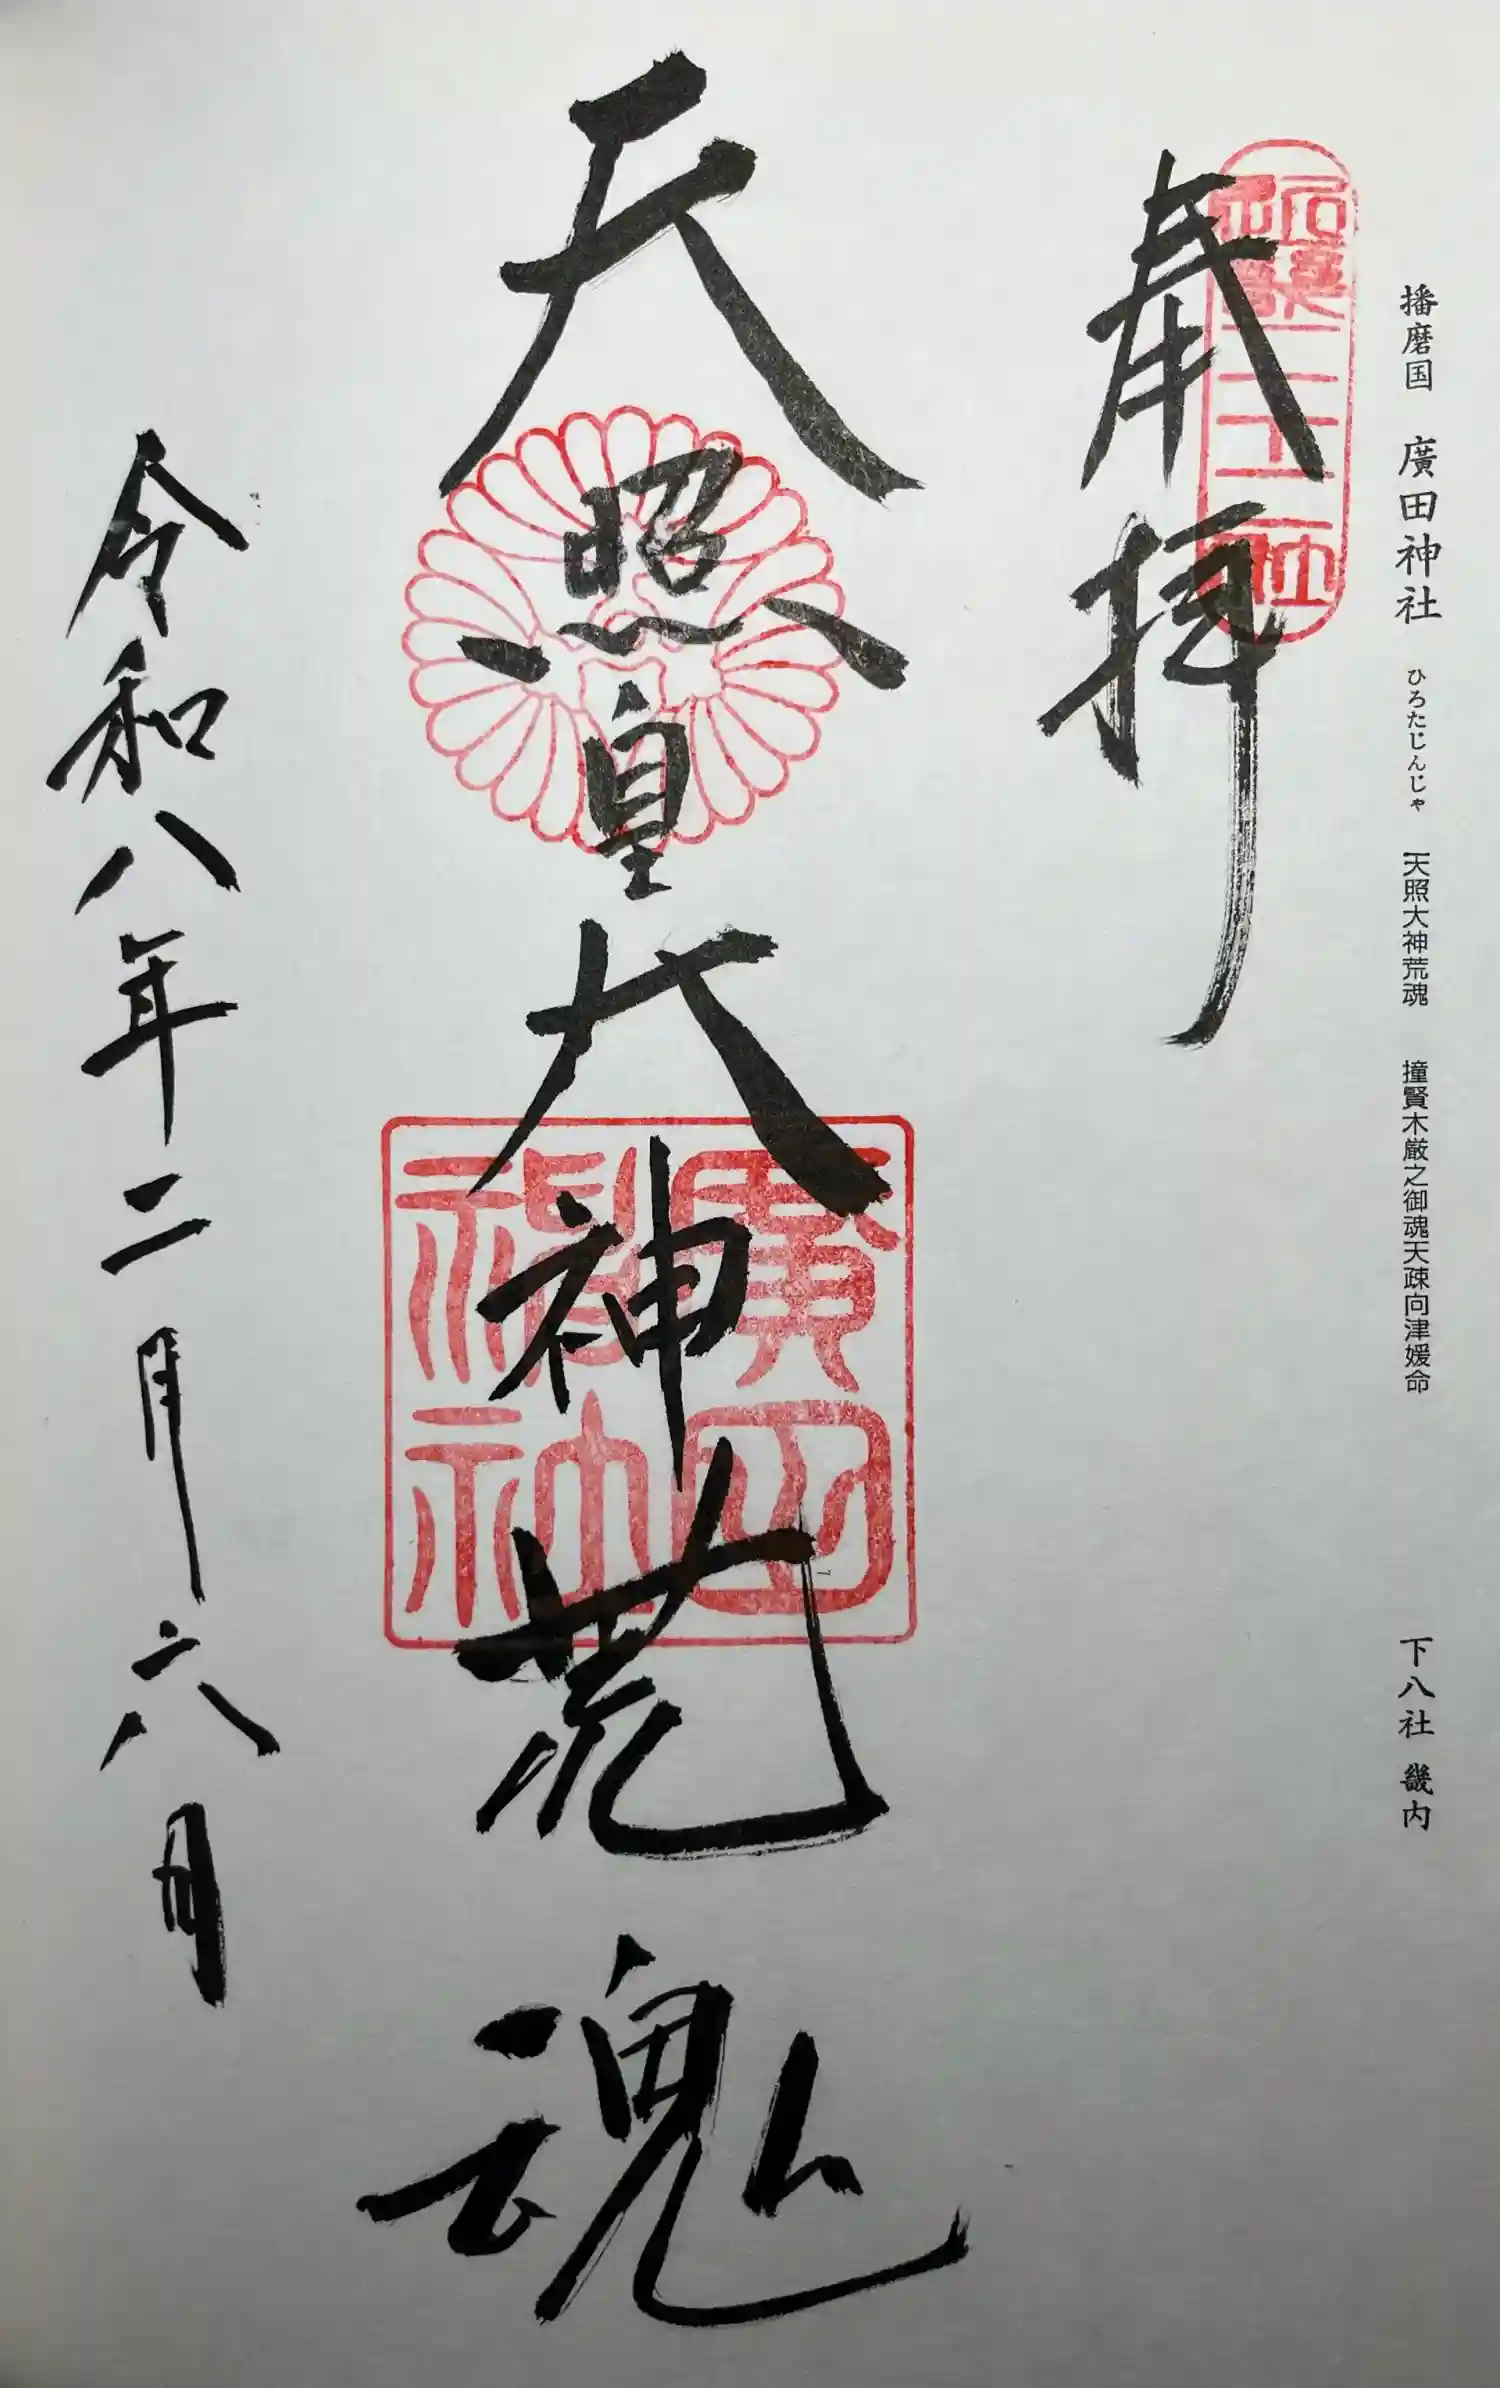 播磨国 廣田神社 ひろたじんじゃ 天照大神荒魂 撞賢木厳之御魂天疎向津媛命 下八社 畿内
奉拝
二十二社
天照皇大神荒魂
廣田
神社
令和八年二月六日